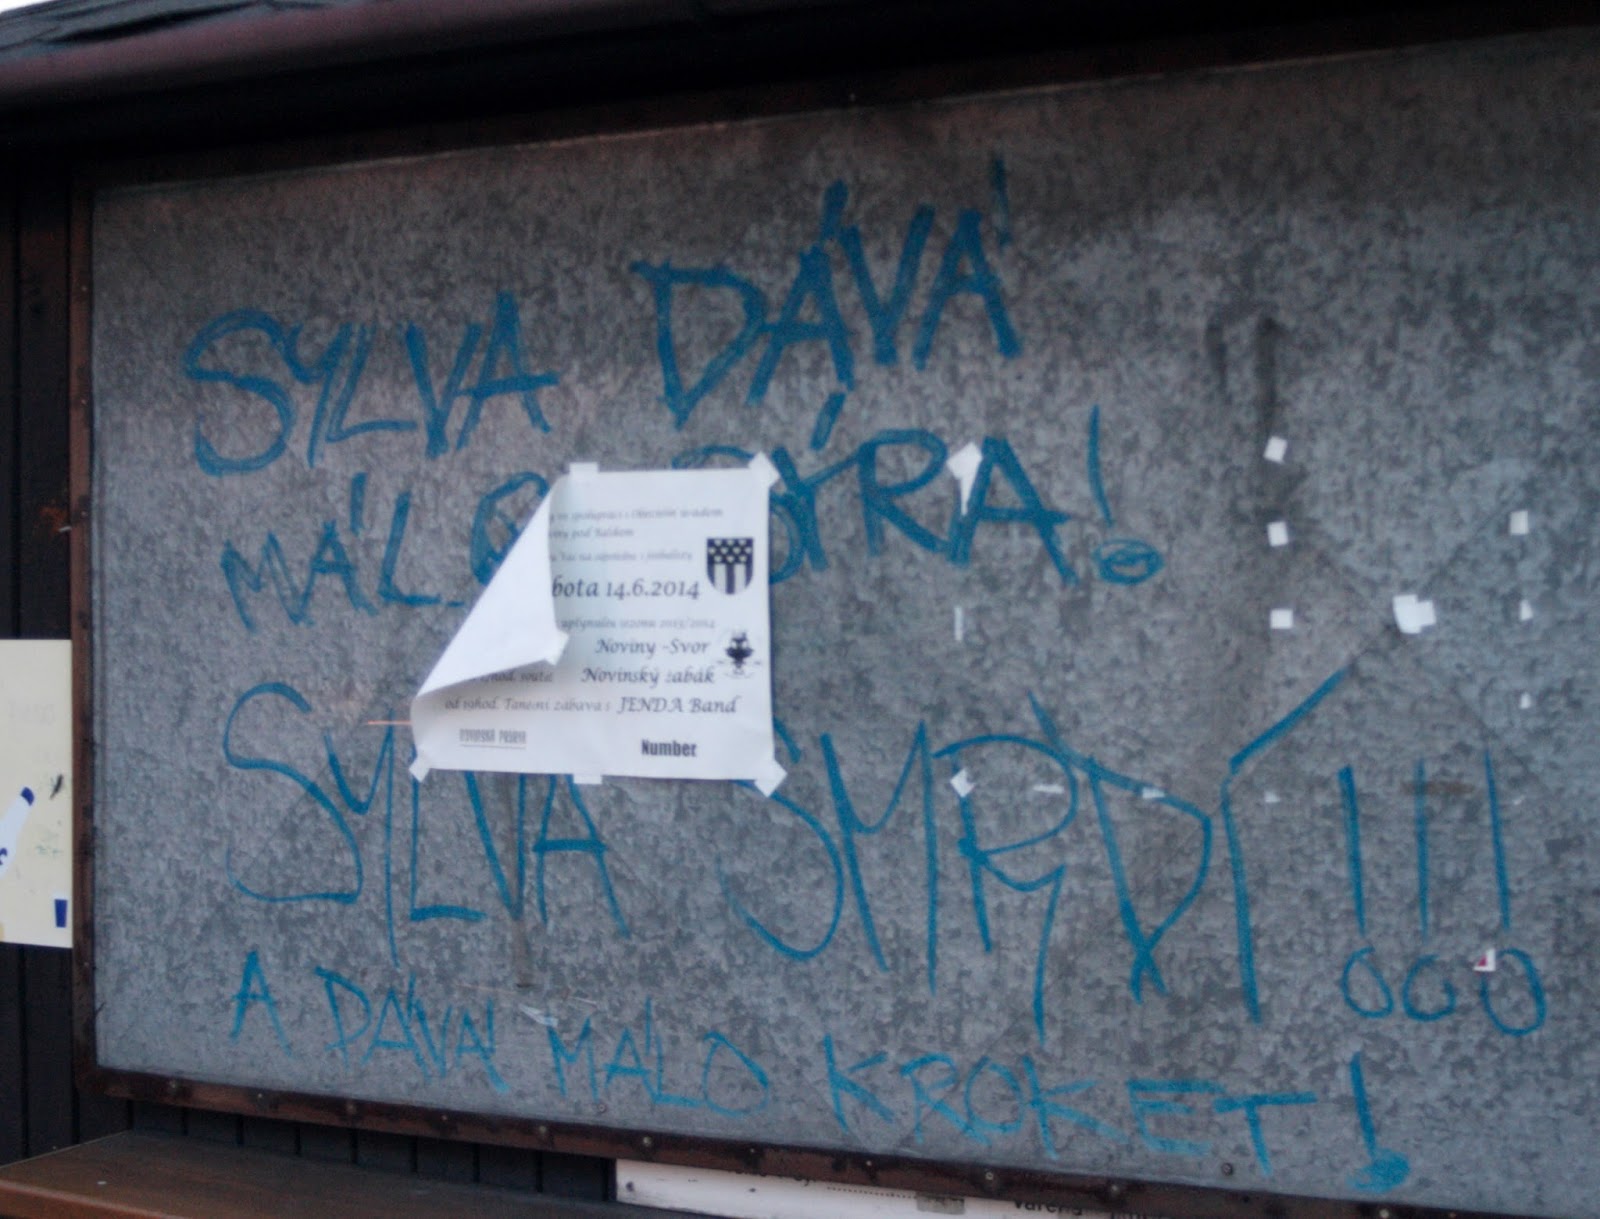 SYLVA DÁVÁ
MÁLO SÝRA!
ve spolupráci s Obecním úřadem
pod Ralskem
Vás na zápolení s fotbalisty
bota 14.6.2014
uplynulou sezonu 2013/2014
Noviny -Svor
hod. soutěž Novinský žabák
od 19hod. Taneční zábava s JENDA Band
Number
SYLVA SMRDÍ!!!
A DÁVÁ MÁLO KROKET!